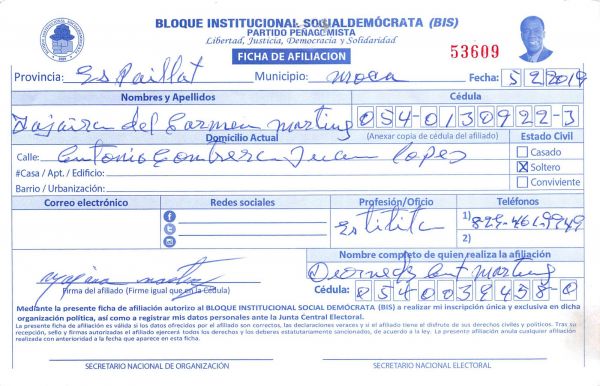 BLOQUE INSTITUCIONAL SOCIALDEMÓCRATA (BIS)
PARTIDO PEÑAGOMISTA
Libertad, Justicia, Democracia y Solidaridad
FICHA DE AFILIACION
53609
Provincia: Es Paillat Municipio: moca Fecha: 5 2 2019
Nombres y Apellidos Cédula
del Carmen Martines 054-0130922-3
Domicilio Actual (Anexar copia de cédula del afiliado) Estado Civil
Calle: Antonio Juan Lopes Casado
#Casa / Apt. / Edificio: X Soltero
Barrio / Urbanización: Conviviente
Correo electrónico Redes sociales Profesión/Oficio Teléfonos
Estilita 1) 829-461-9949
2)
Nombre completo de quien realiza la afiliación
Martines
Firma del afiliado (Firme igual que en la Cédula) Cédula: 05400394580
Mediante la presente ficha de afiliación autorizo al BLOQUE INSTITUCIONAL SOCIAL DEMÓCRATA (BIS) a realizar mi inscripción única y exclusiva en dicha
organización política, así como a registrar mis datos personales ante la Junta Central Electoral.
La presente ficha de afiliación es válida si los datos ofrecidos por el afiliado son correctos, las declaraciones veraces y si el afiliado tiene el disfrute de sus derechos civiles y políticos. Tras su
recepción, sello y firmas autorizadas el afiliado ejercerá todos los derechos y los deberes estatutariamente sancionados, de acuerdo a la ley. La presente afiliación anula cualquier afiliación
realizada con anterioridad a la fecha que aparece en esta ficha.
SECRETARIO NACIONAL DE ORGANIZACIÓN SECRETARIO NACIONAL ELECTORAL